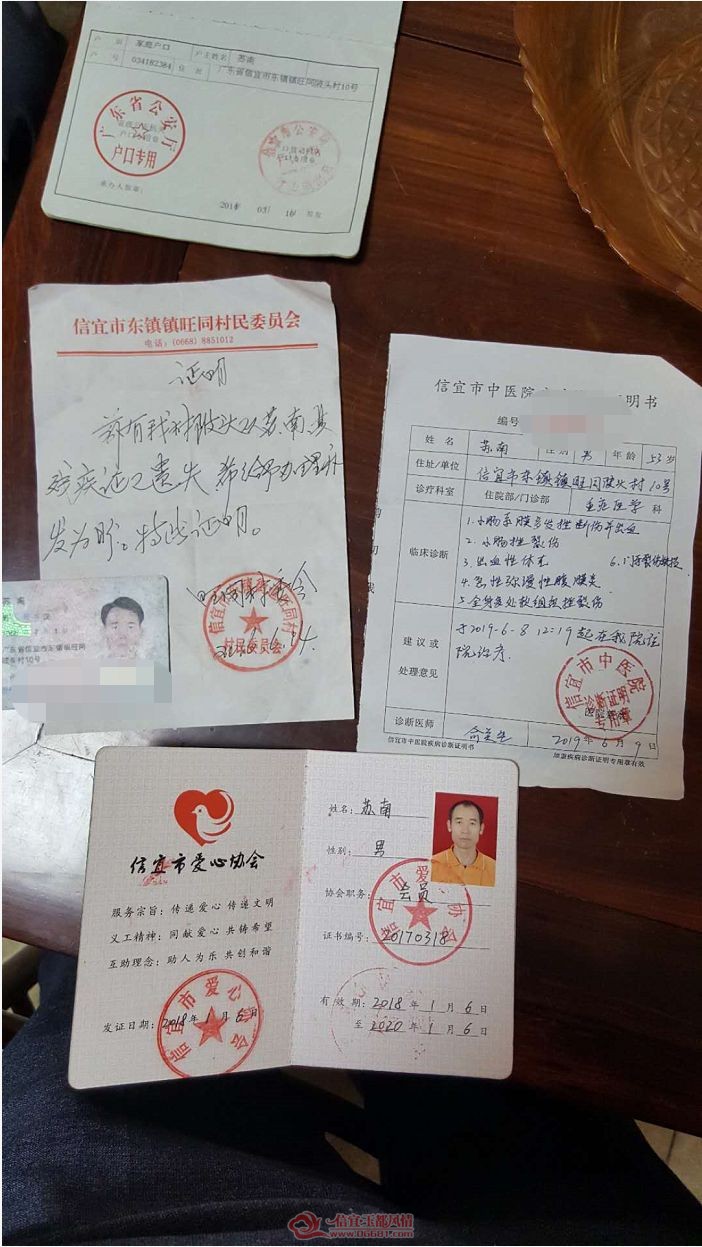 户别 家庭户口 户主姓名 苏南
户号 034182384 住址 广东省信宜市东镇镇旺同陂头村10号
广东省公安厅
户口专用
信宜市公安局
承办人签章：
03月 16 签发
信宜市东镇镇旺同村民委员会
电话：(0668) 8851012
证明
兹有我村陂头队苏南，其
残疾证已遗失，希给予办理补
发为盼。特此证明。
旺同村委会
信宜市东镇镇旺同村
村民委员会
苏南
汉
广东省信宜市东镇镇旺同
陂头村10号
信宜市中医院 明书
编号
姓名 苏南 性别 男 年龄 53岁
住址/单位 信宜市东镇镇旺同陂头村10号
诊疗科室 住院部/门诊部 重症医学科
临床诊断
1.小肠系膜多发挫断伤并出血
2.小肠挫裂伤
3.出血性休克
4.急性弥漫性腹膜炎
5.全身多处软组织挫裂伤
建议或
处理意见
于2019-6-8 12:19起在我院住
院诊疗.
信宜市中医院
诊断证明
专用章
诊断医师
2019年6月9日
信宜市中医院疾病诊断证明书
加盖疾病诊断证明专用章有效
信宜市爱心协会
服务宗旨：传递爱心 传递文明
义工精神：同献爱心 共铸希望
互助理念：助人为乐 共创和谐
发证日期：2018年1月6日
信宜市爱心协会
姓名：苏南
性别：男
协会职务：会员
证书编号：20170318
信宜市爱心协会
有效期：2018年1月6日
至2020年1月6日
信宜玉都风情
www.06681.com